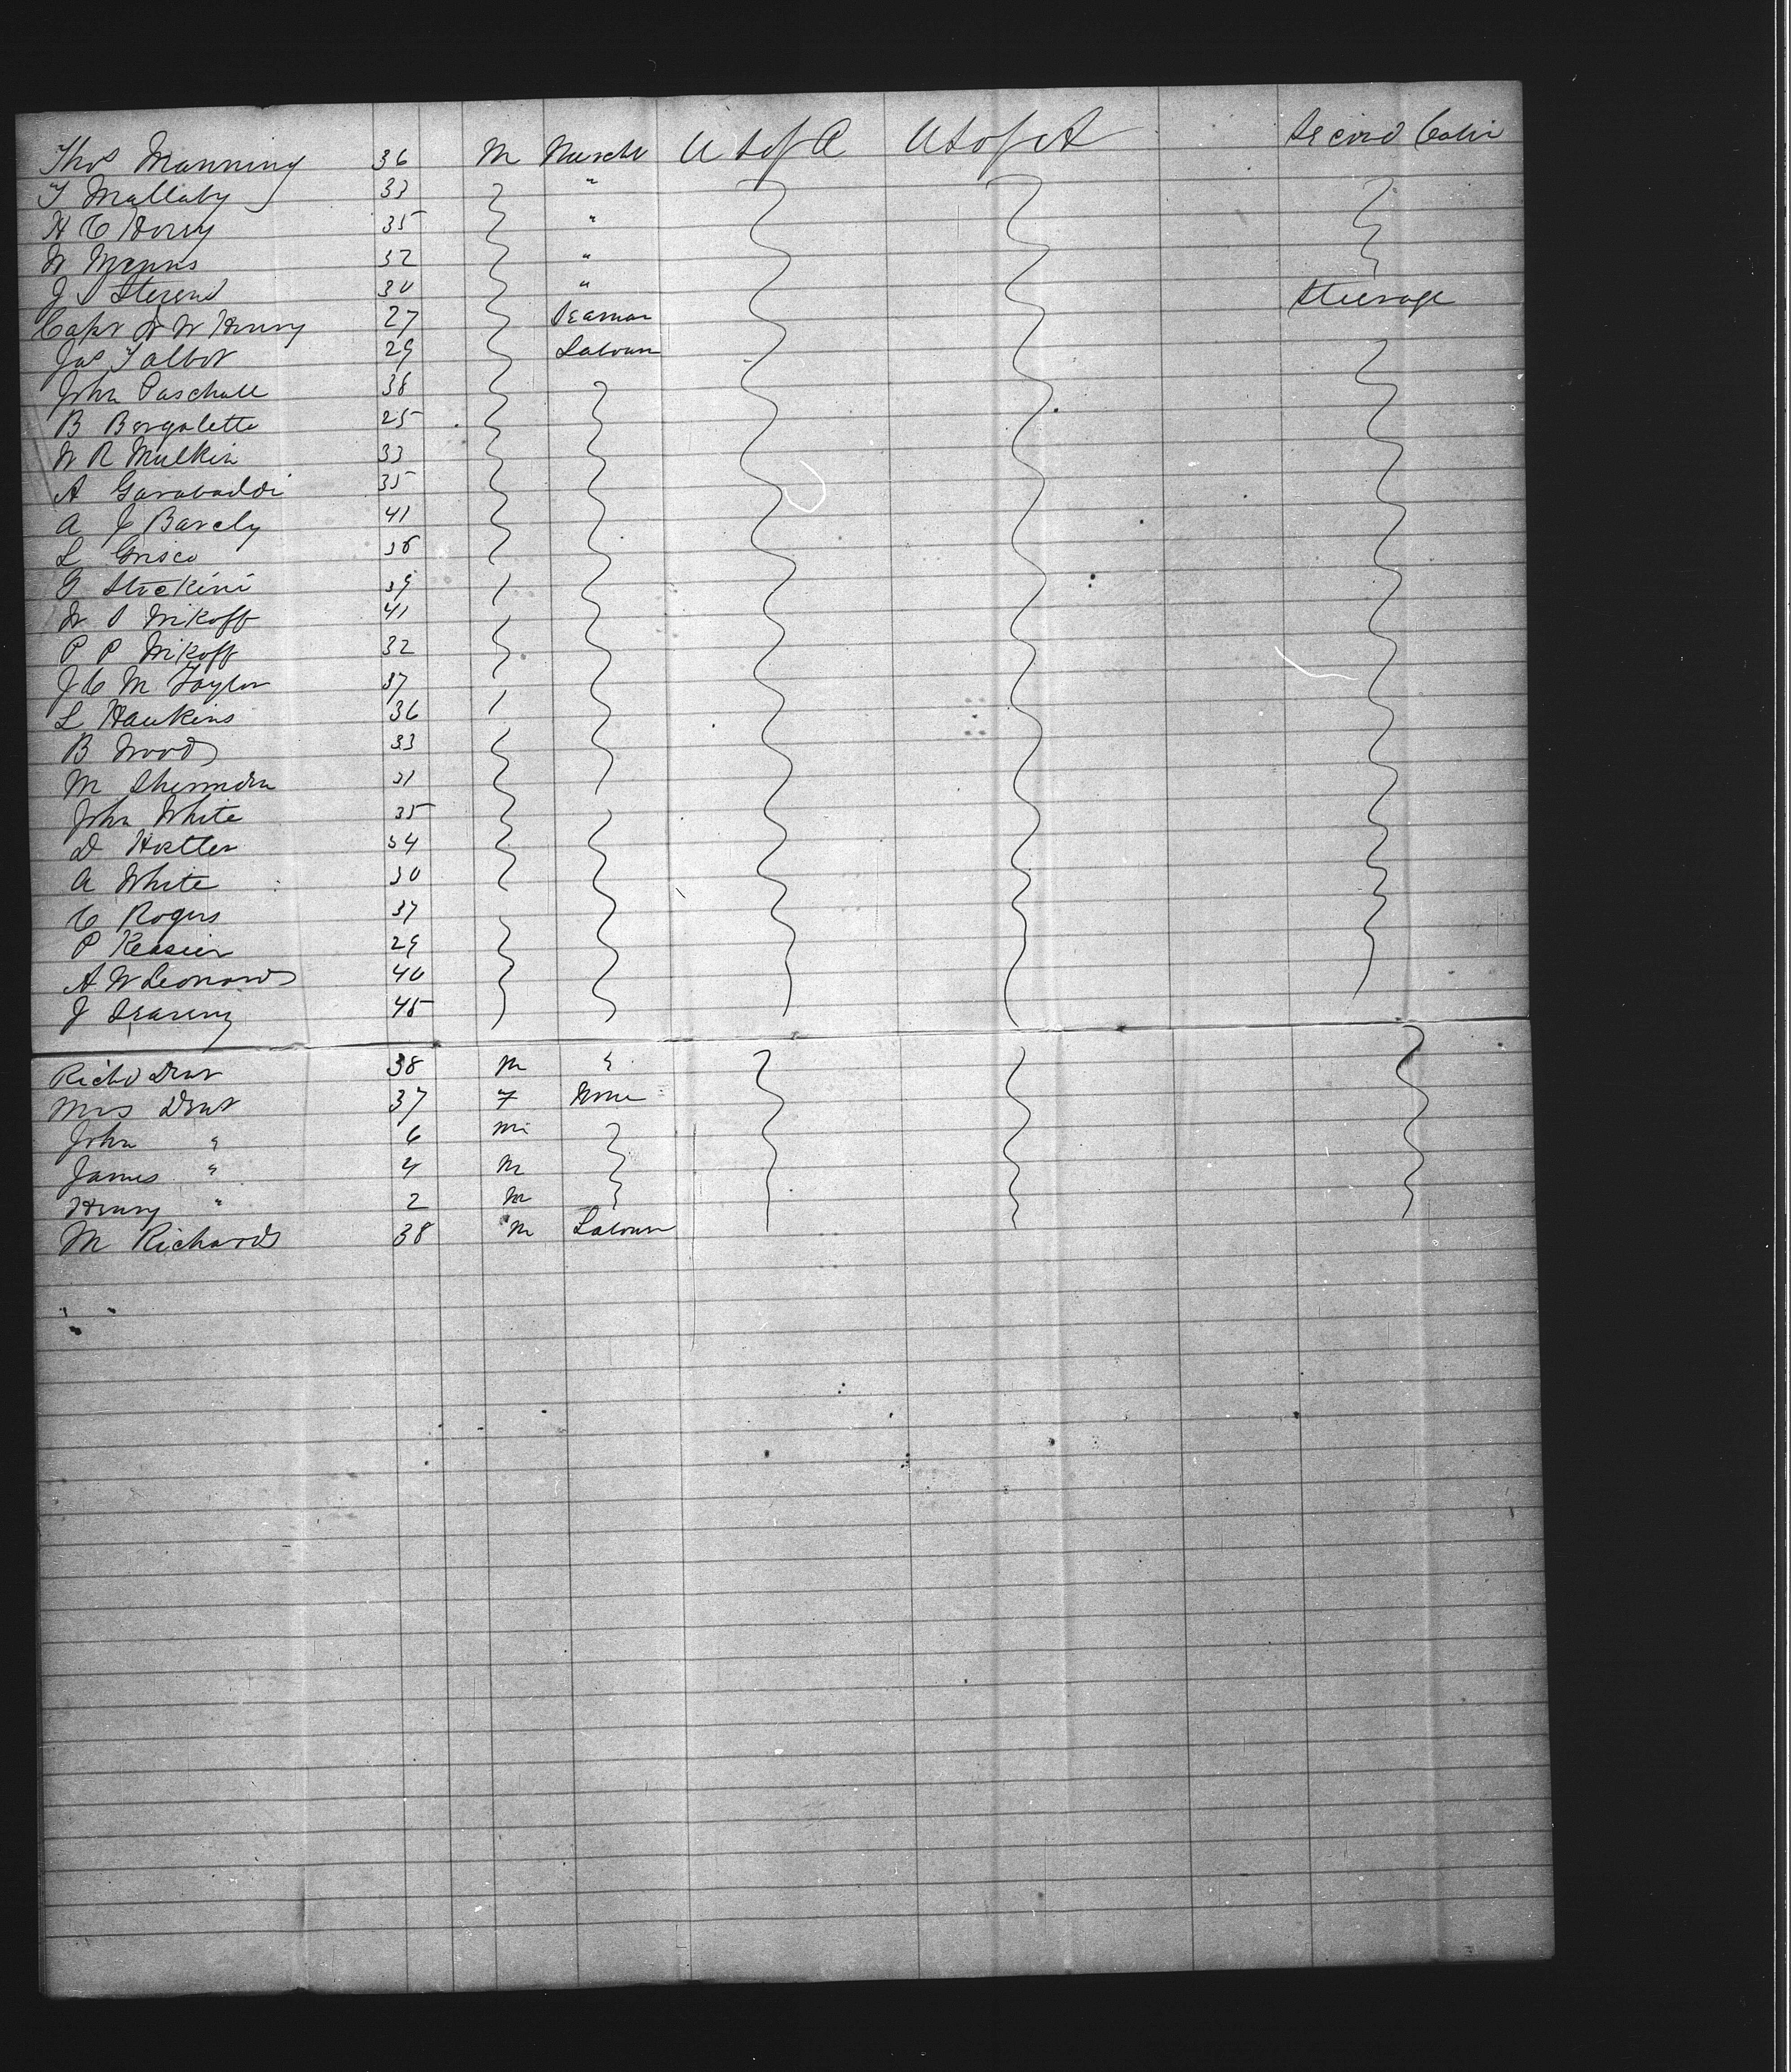 Thos Manning 36 M Mercht U S of A U S of A Second Cabin
T Mallaby 33 "
H C Henry 35 "
W 32 "
J S 30 " Steerage
Capt W W Henry 27 Seaman
Jas Talbot 29 Laborer
John Paschall 38
B Bergalette 25
W R Mulkin 33
A Garabaddi 35
A J Barely 41
L Grisco 38
G Stockini 39
W S Wikoff 41
P P Wikoff 32
J C M Taylor 37
L Hawkins 36
B Woods 33
M Sherman 31
John White 35
D Hostler 34
A White 30
C Rogers 37
P 29
A W Leonard 40
J Dearing 45
Richd Dent 38 M
Mrs Dent 37 F None
John " 6 M
James " 4 M
Henry " 2 M
M Richards 38 M Laborer